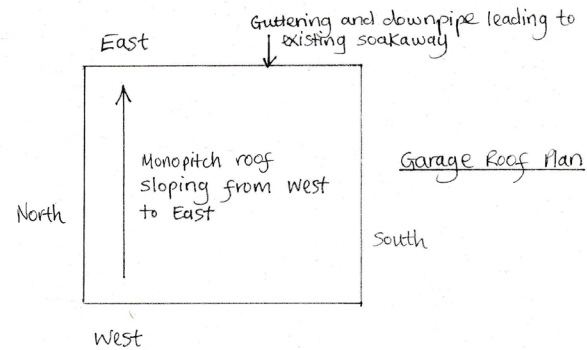 Guttering and downpipe leading to
existing soakaway
East
Monopitch roof
sloping from West
to East
Garage Roof Plan
North
South
West